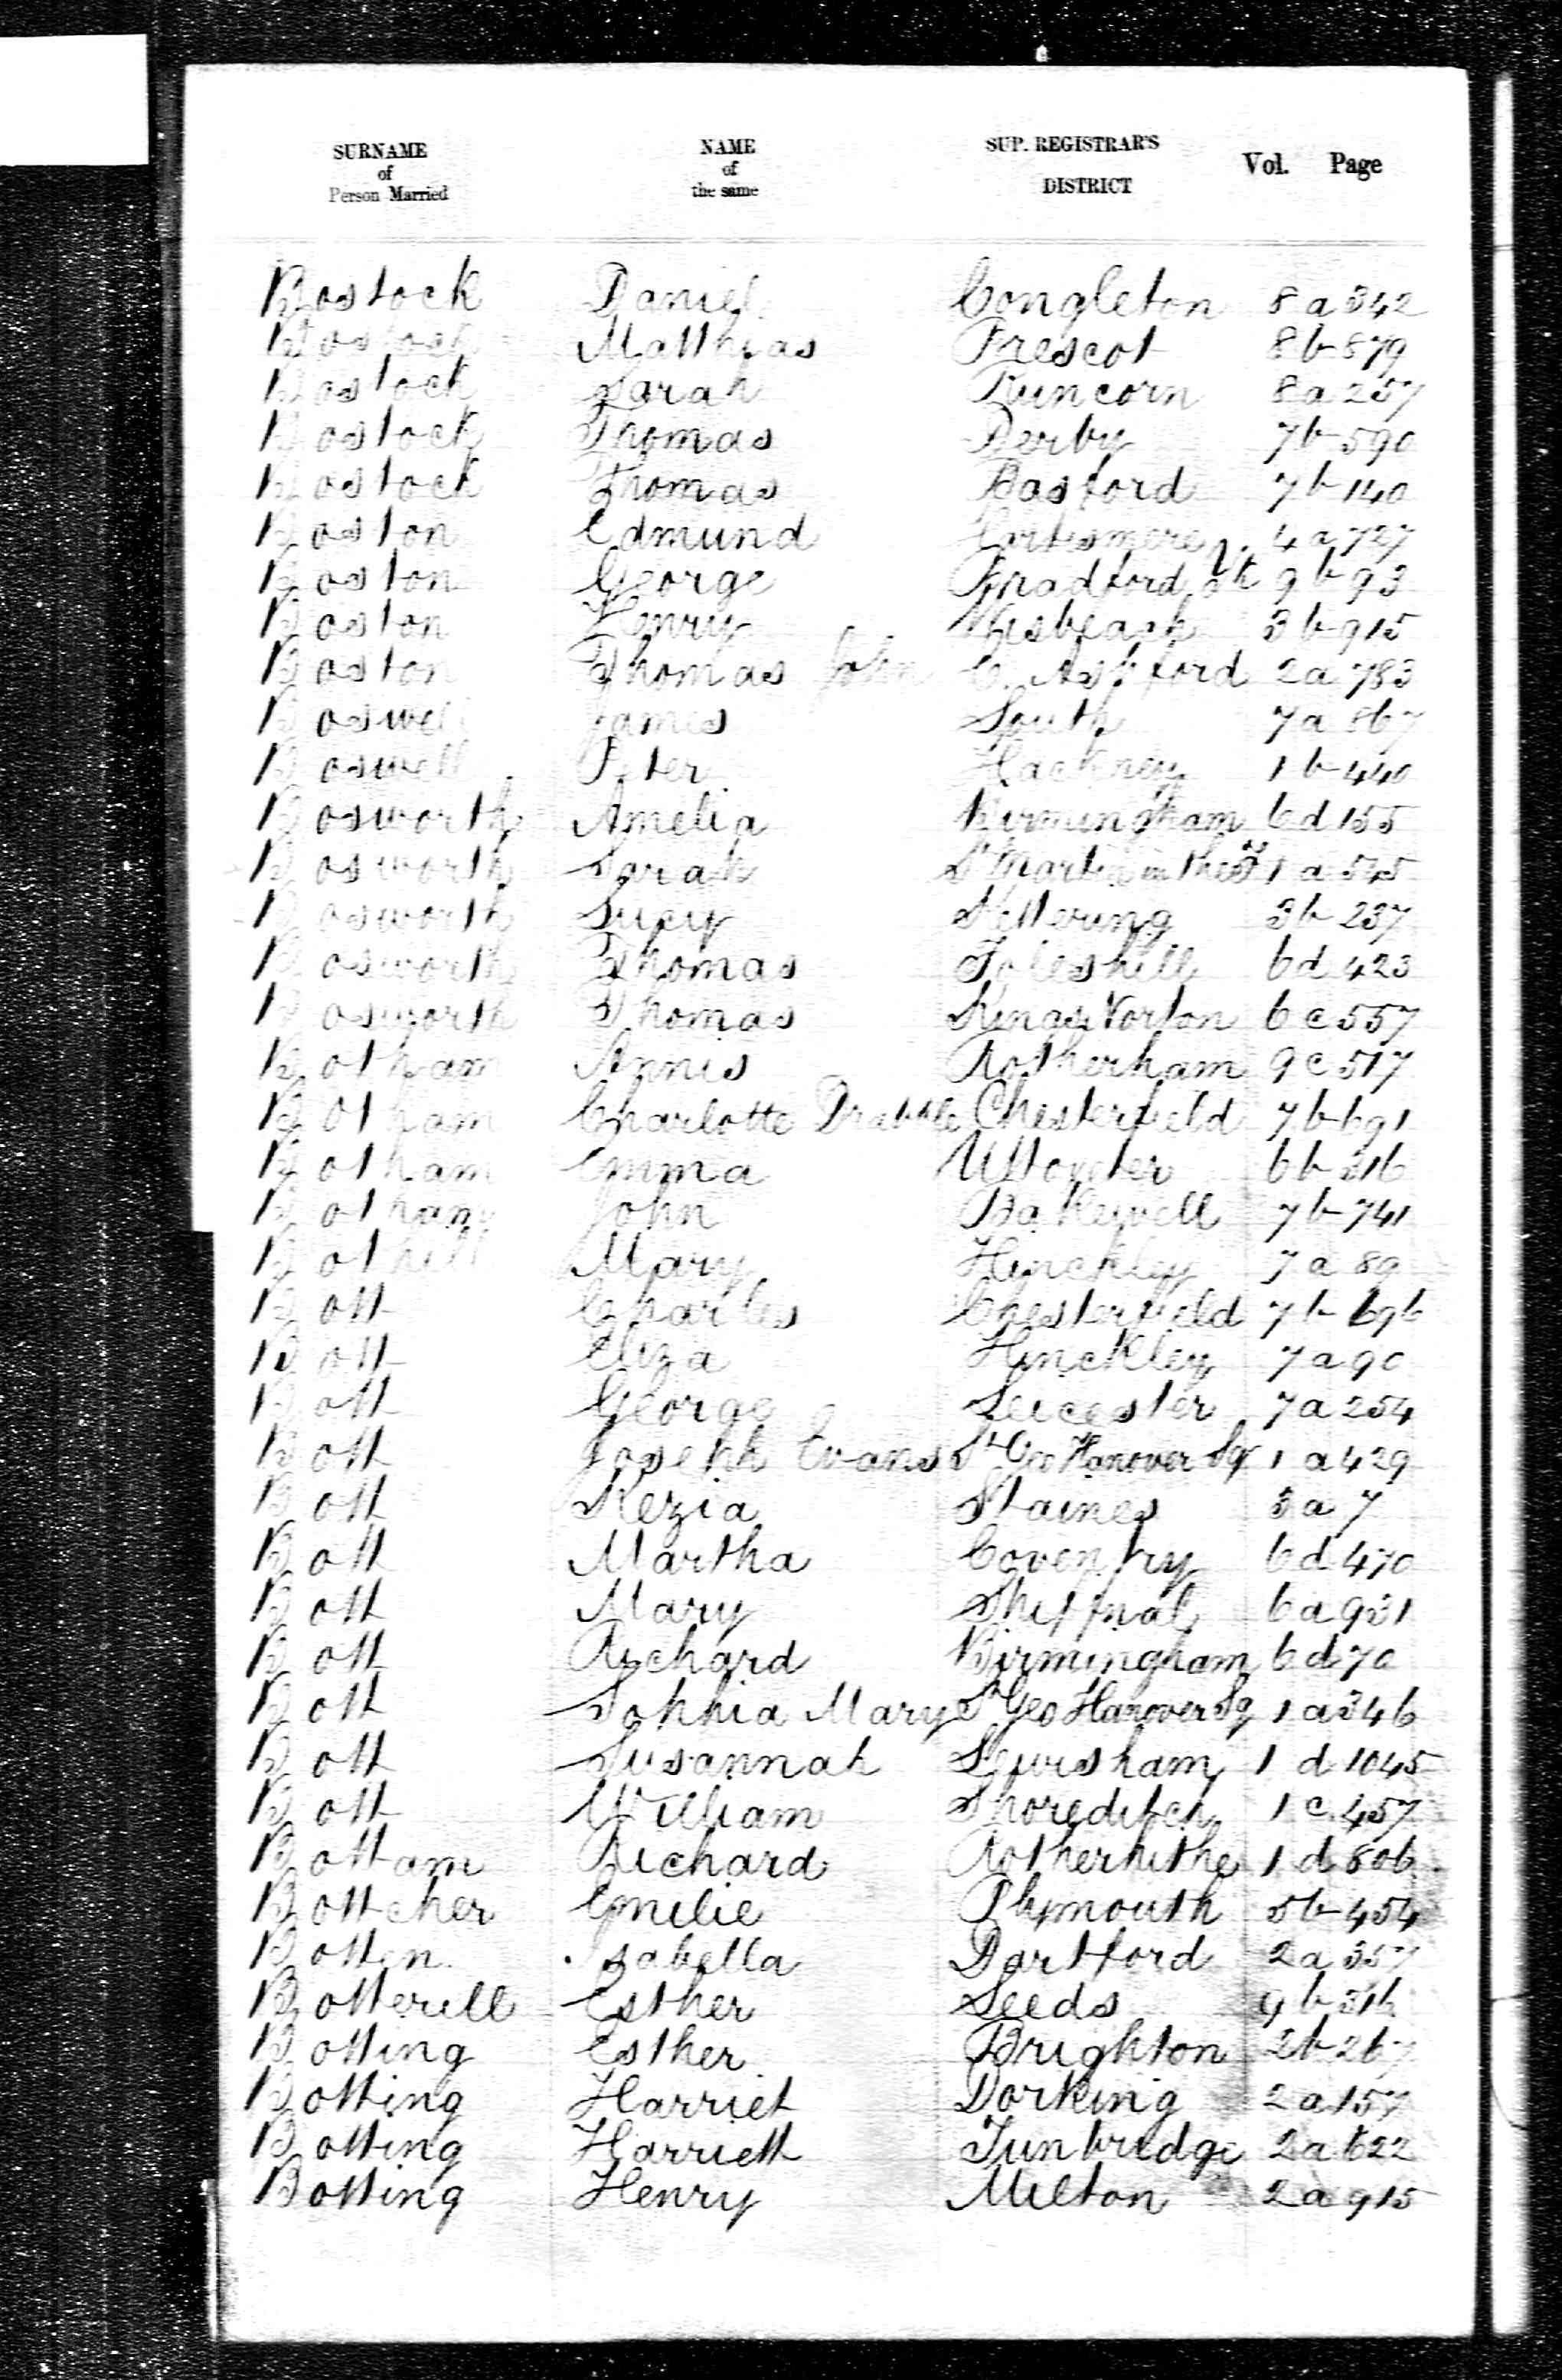 SURNAME of Person Married NAME of the same SUP. REGISTRAR'S DISTRICT Vol. Page
Bostock Daniel Congleton 8a 342
Bostock Matthias Prescot 8b 879
Bostock Sarah Runcorn 8a 257
Bostock Thomas Derby 7b 590
Bostock Thomas Basford 7b 140
Boston Edmund Hartismere 4a 727
Boston George Bradford Yk 9b 93
Boston Henry Wisbeach 3b 915
Boston Thomas John Ashford 2a 783
Boswell James South 7a 867
Boswell Peter Hackney 1b 440
Bosworth Amelia Birmingham 6d 155
Bosworth Sarah St Martin in the 1a 545
Bosworth Lucy Kettering 3b 237
Bosworth Thomas Foleshill 6d 423
Bosworth Thomas Kings Norton 6c 557
Botham Annis Rotherham 9c 517
Botham Charlotte Drabble Chesterfield 7b 691
Botham Emma Uttoxeter 6b 316
Botham John Bakewell 7b 741
Bothill Mary Hinckley 7a 89
Bott Charles Chesterfield 7b 696
Bott Eliza Hinckley 7a 90
Bott George Leicester 7a 254
Bott Joseph Evans St Geo Hanover Sq 1a 429
Bott Kezia Staines 3a 7
Bott Martha Coventry 6d 470
Bott Mary Shiffnal 6a 931
Bott Richard Birmingham 6d 70
Bott Sophia Mary St Geo Hanover Sq 1a 346
Bott Susannah Lewisham 1d 1045
Bott William Shoreditch 1c 457
Bottam Richard Rotherhithe 1d 806
Bottcher Emilie Plymouth 5b 454
Botten Isabella Dartford 2a 357
Botterill Esther Leeds 9b 316
Botting Esther Brighton 2b 267
Botting Harriet Dorking 2a 157
Botting Harriett Tunbridge 2a 622
Botting Henry Milton 2a 915